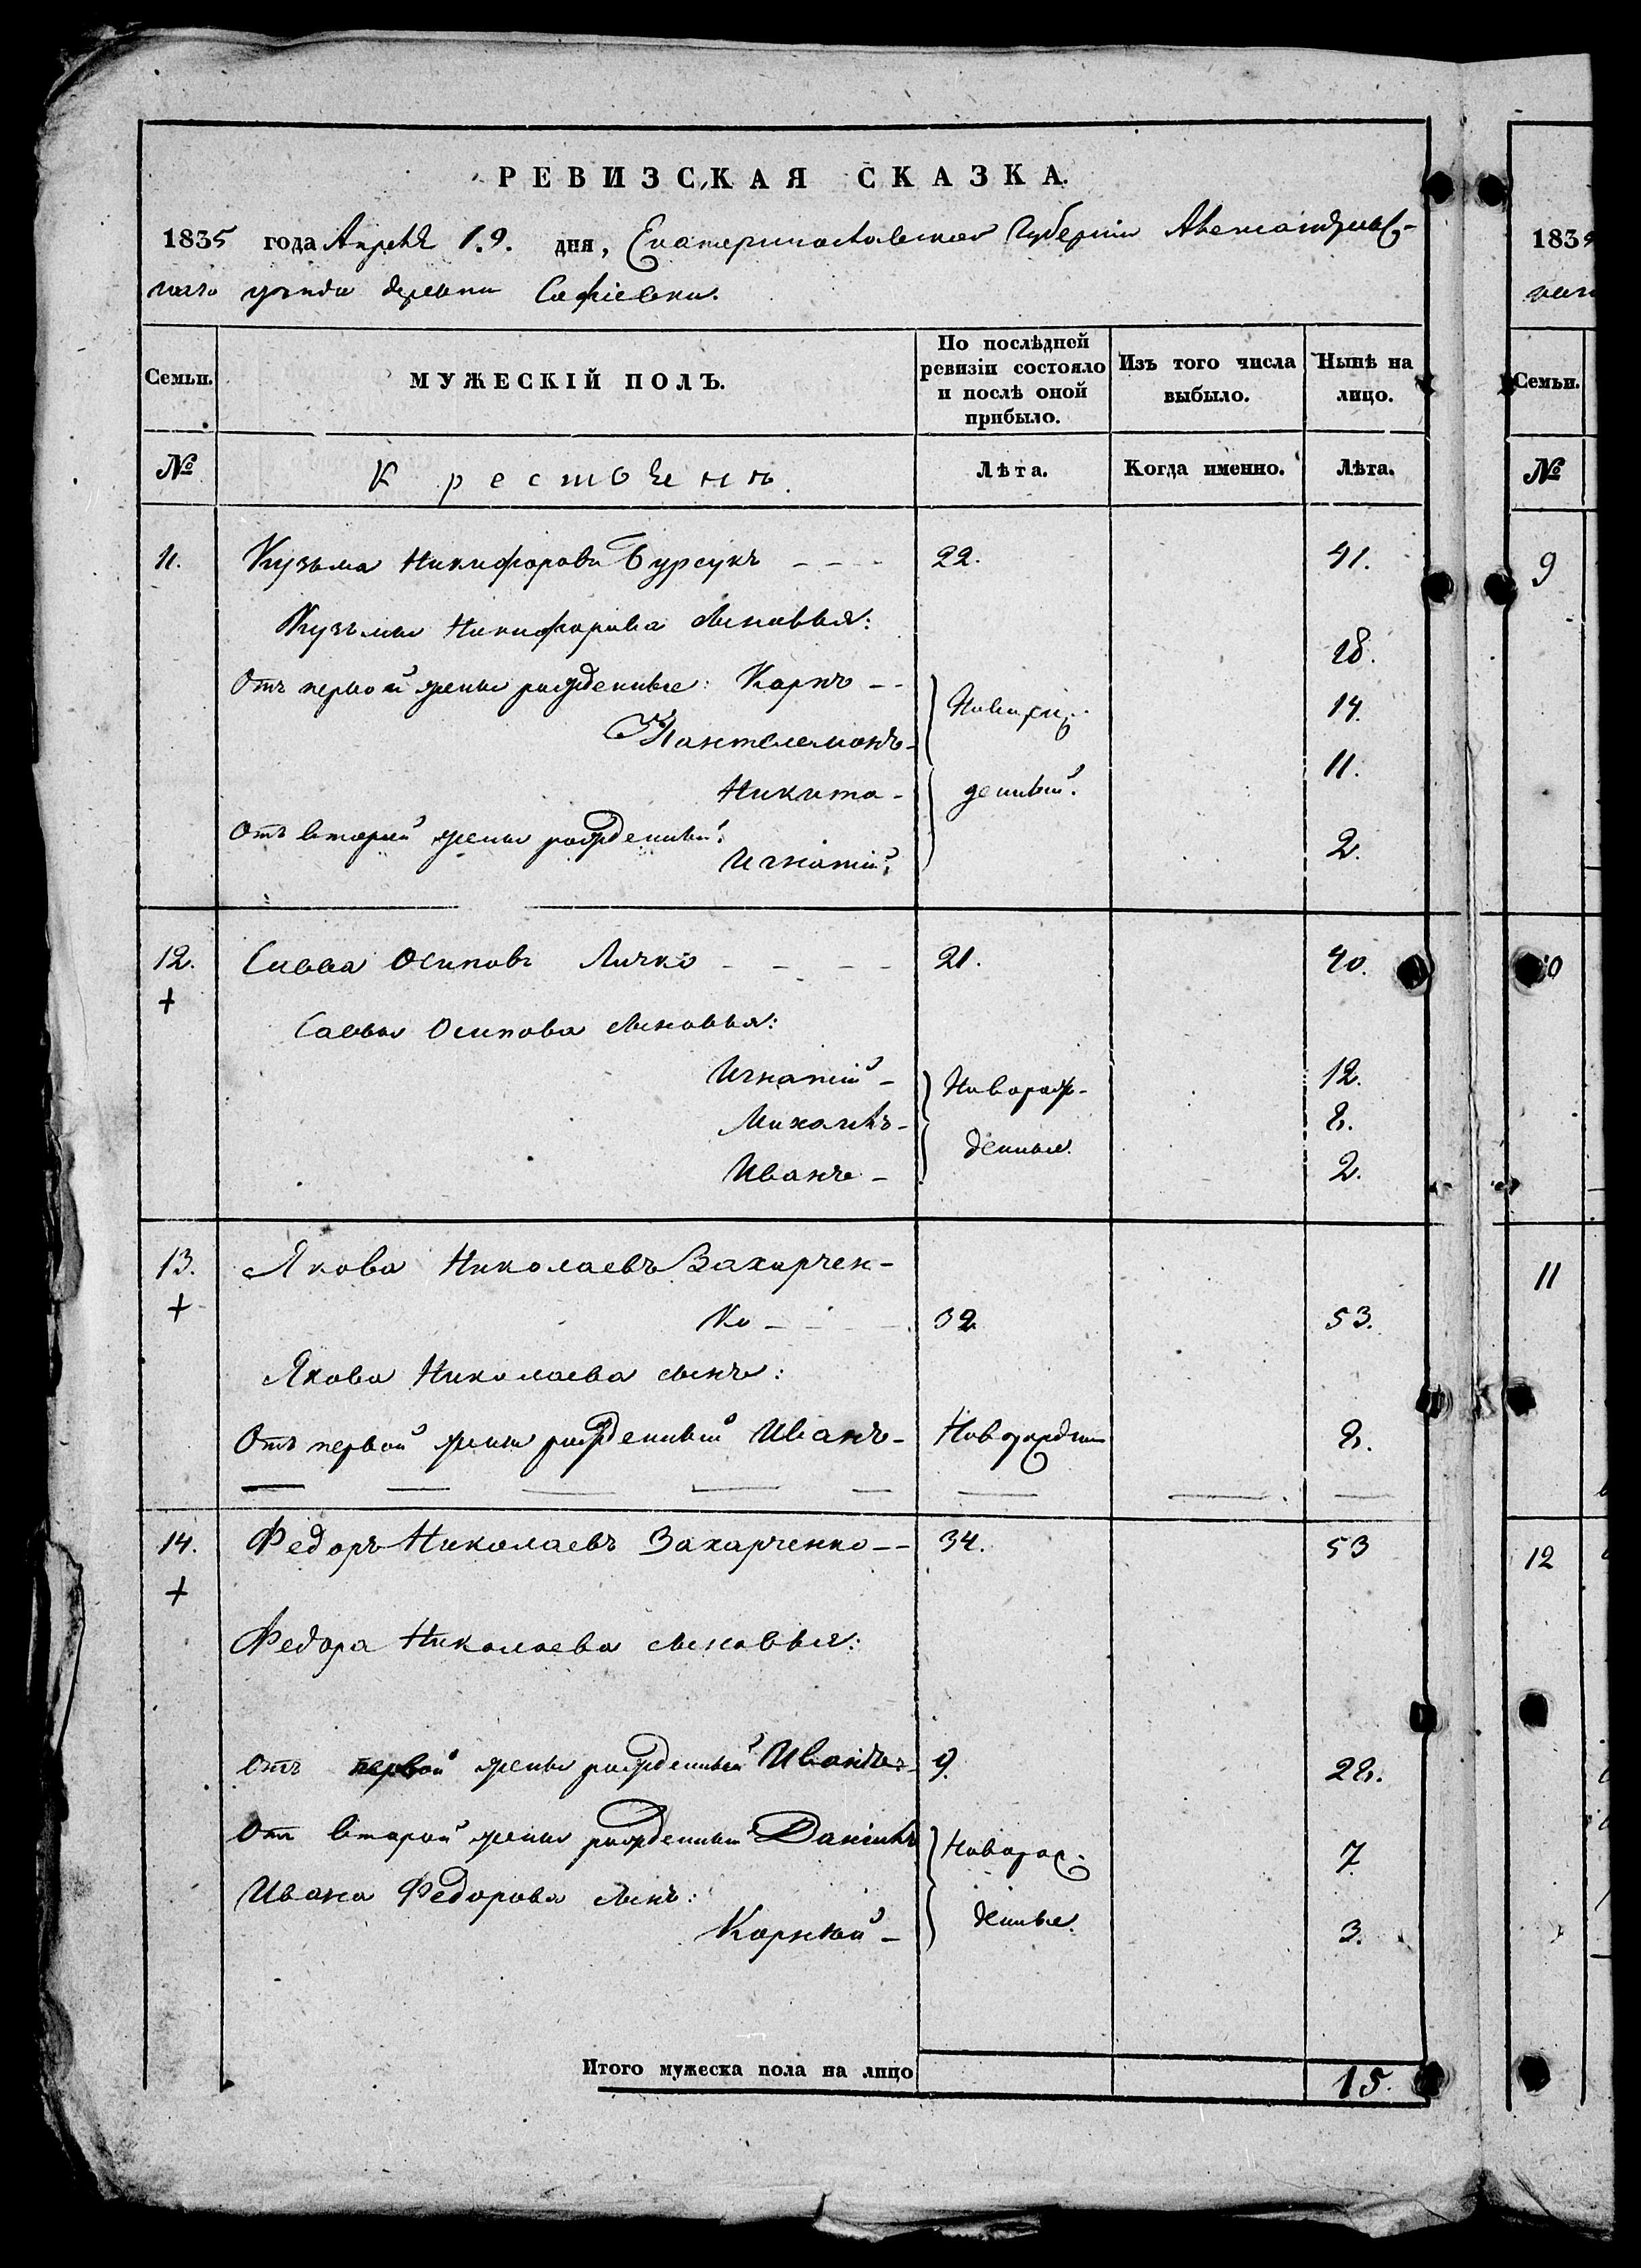 РЕВИЗСКАЯ СКАЗКА.
1835 года Апреля 19. дня, Екатеринославской Губернии Александровс-
каго уезда деревни Софіевки.
Семьи. МУЖЕСКІЙ ПОЛЪ. По послѣдней ревизіи состояло и послѣ оной прибыло. Изъ того числа выбыло. Нынѣ на лицо.
№ Крестьяне Лѣта. Когда именно. Лѣта.
11. Кузьма Никифоровъ Бурсукъ 22. 41.
Кузьмы Никифорова сыновья:
Отъ первой жены рожденные: Карпъ Новорож- 18.
Пантелемонъ 14.
Никита денный. 11.
Отъ второй жены рожденный:
Игнатій 2.
12. Савва Осиповъ Личко 21. 40.
+
Саввы Осипова сыновья:
Игнатій Новорож- 12.
Михаилъ 8.
денные.
Иванъ 2.
13. Яковъ Николаевъ Захарчен-
+ ко 32. 53.
Якова Николаева сынъ:
Отъ первой жены рожденный Иванъ 8.
14. Федоръ Николаевъ Захарченко 34. 53
+
Федора Николаева сыновья:
Отъ первой жены рожденный Иванъ 9. 28.
Отъ второй жены рожденный Даніилъ Новорож- 7.
Ивана Федорова сынъ:
денные.
Корней 3.
Итого мужеска пола на лицо 15.
1835
№
Семьи.
9
10
11
12